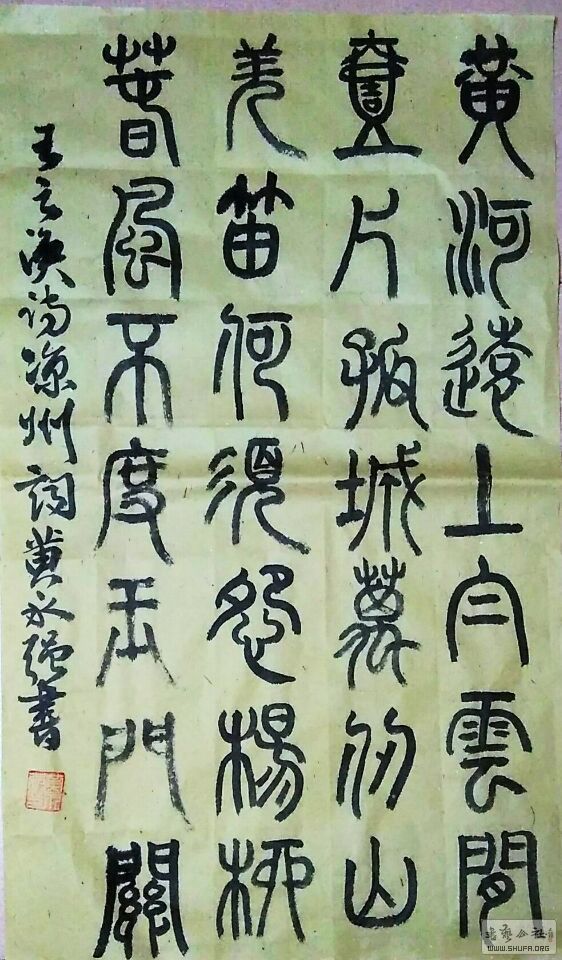 黄河遠上白雲間
壹片孤城萬仞山
羌笛何須怨楊柳
春風不度玉門關
王之涣诗凉州词黄永强書
书艺公社
WWW.SHUFA.ORG